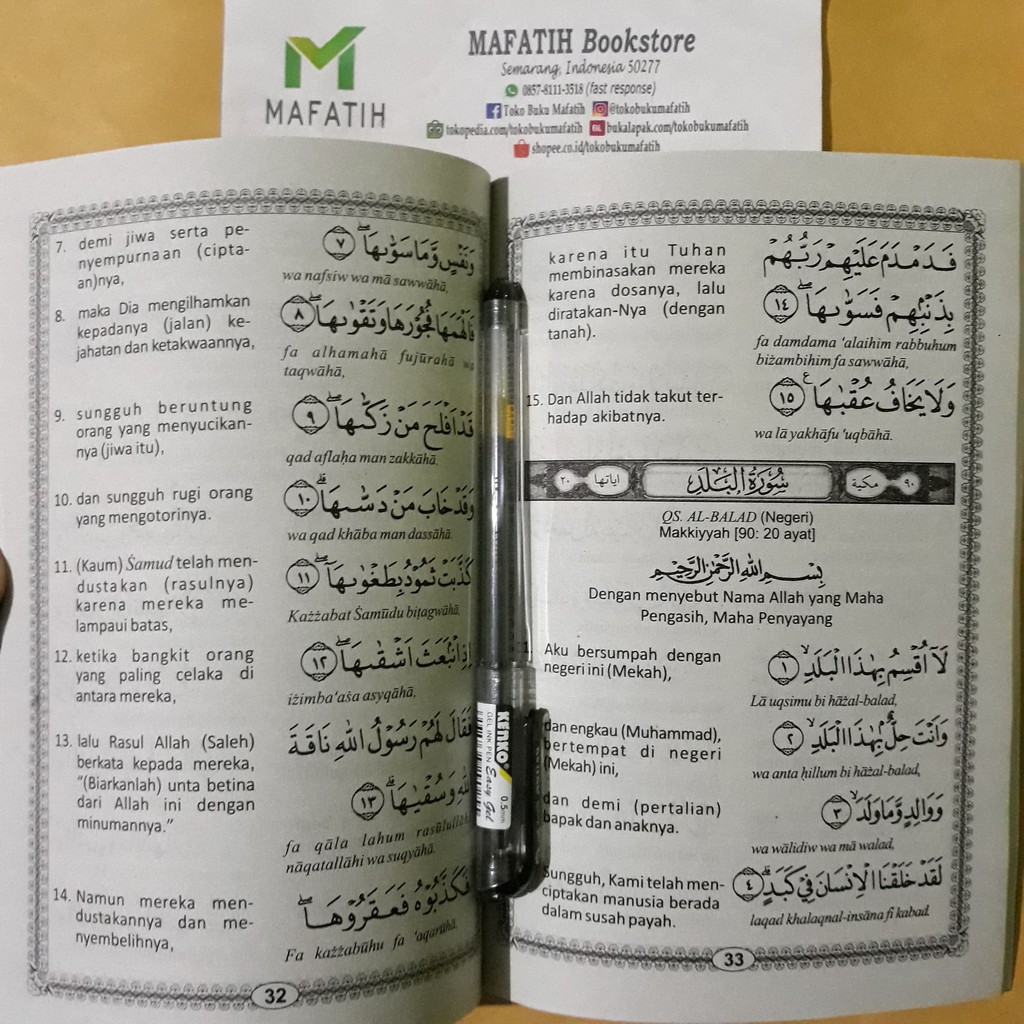 MAFATIH
MAFATIH Bookstore
Semarang, Indonesia 50277
0857-8111-3518 (fast response)
Toko Buku Mafatih @tokobukumafatih
tokopedia.com/tokobukumafatih bukalapak.com/tokobukumafatih
shopee.co.id/tokobukumafatih
7. demi jiwa serta pe-
nyempurnaan (cipta-
an)nya,
وَنَفْسٍ وَّمَا سَوّٰىهَاۖ ٧
wa nafsiw wa mā sawwāhā,
8. maka Dia mengilhamkan
kepadanya (jalan) ke-
jahatan dan ketakwaannya,
فَاَلْهَمَهَا فُجُوْرَهَا وَتَقْوٰىهَاۖ ٨
fa alhamahā fujūrahā wa
taqwāhā,
9. sungguh beruntung
orang yang menyucikan-
nya (jiwa itu),
قَدْ اَفْلَحَ مَنْ زَكّٰىهَاۖ ٩
qad aflaḥa man zakkāhā,
10. dan sungguh rugi orang
yang mengotorinya.
وَقَدْ خَابَ مَنْ دَسّٰىهَاۗ ١٠
wa qad khāba man dassāhā.
11. (Kaum) Ṡamud telah men-
dustakan (rasulnya)
karena mereka me-
lampaui batas,
كَذَّبَتْ ثَمُوْدُ بِطَغْوٰىهَآۖ ١١
Każżabat Ṡamūdu biṭagwāhā,
12. ketika bangkit orang
yang paling celaka di
antara mereka,
اِذِ انْۢبَعَثَ اَشْقٰىهَاۖ ١٢
iżimba'aṡa asyqāhā,
13. lalu Rasul Allah (Saleh)
berkata kepada mereka,
"(Biarkanlah) unta betina
dari Allah ini dengan
minumannya."
فَقَالَ لَهُمْ رَسُوْلُ اللّٰهِ نَاقَةَ
اللّٰهِ وَسُقْيٰهَاۗ ١٣
fa qāla lahum rasūlullāhi
nāqatallāhi wa suqyāhā.
14. Namun mereka men-
dustakannya dan me-
nyembelihnya,
فَكَذَّبُوْهُ فَعَقَرُوْهَاۖ
Fa każżabūhu fa 'aqarūhā.
32
karena itu Tuhan
membinasakan mereka
karena dosanya, lalu
diratakan-Nya (dengan
tanah).
فَدَمْدَمَ عَلَيْهِمْ رَبُّهُمْ
بِذَنْۢبِهِمْ فَسَوّٰىهَاۖ ١٤
fa damdama 'alaihim rabbuhum
biżambihim fa sawwāhā,
15. Dan Allah tidak takut ter-
hadap akibatnya.
وَلَا يَخَافُ عُقْبٰهَا ࣖ ١٥
wa lā yakhāfu 'uqbāhā.
٩٠ مكية سُوْرَةُ الْبَلَدِ اياتها ٢٠
QS. AL-BALAD (Negeri)
Makkiyyah [90: 20 ayat]
بِسْمِ اللّٰهِ الرَّحْمٰنِ الرَّحِيْمِ
Dengan menyebut Nama Allah yang Maha
Pengasih, Maha Penyayang
1. Aku bersumpah dengan
negeri ini (Mekah),
لَآ اُقْسِمُ بِهٰذَا الْبَلَدِۙ ١
Lā uqsimu bi hāżal-balad,
dan engkau (Muhammad),
bertempat di negeri
(Mekah) ini,
وَاَنْتَ حِلٌّۢ بِهٰذَا الْبَلَدِۙ ٢
wa anta ḥillum bi hāżal-balad,
dan demi (pertalian)
bapak dan anaknya.
وَوَالِدٍ وَّمَا وَلَدَۙ ٣
wa wālidiw wa mā walad,
Sungguh, Kami telah men-
ciptakan manusia berada
dalam susah payah.
لَقَدْ خَلَقْنَا الْاِنْسَانَ فِيْ كَبَدٍۗ ٤
laqad khalaqnal-insāna fī kabad.
33
KENKO
GEL INK PEN Easy Gel
0.5mm